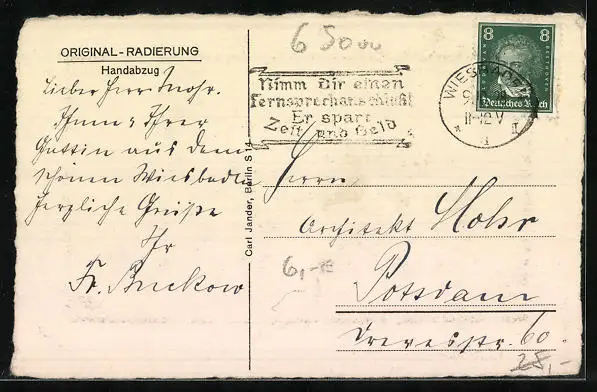 ORIGINAL-RADIERUNG
Handabzug
Lieber Herr Mohr.
Ihnen u Ihrer
Gattin aus dem
schönen Wiesbaden
herzliche Grüße
Ihr
Fr. Buckow
Carl Jander, Berlin S 14
65000
Nimm Dir einen
Fernsprechanschluß!
Er spart
Zeit und Geld
WIESBADEN
11-12 V
1
8 8
BEETHOVEN
Deutsches Reich
Herrn
Architekt Mohr
6,-
Potsdam
60.
28,-